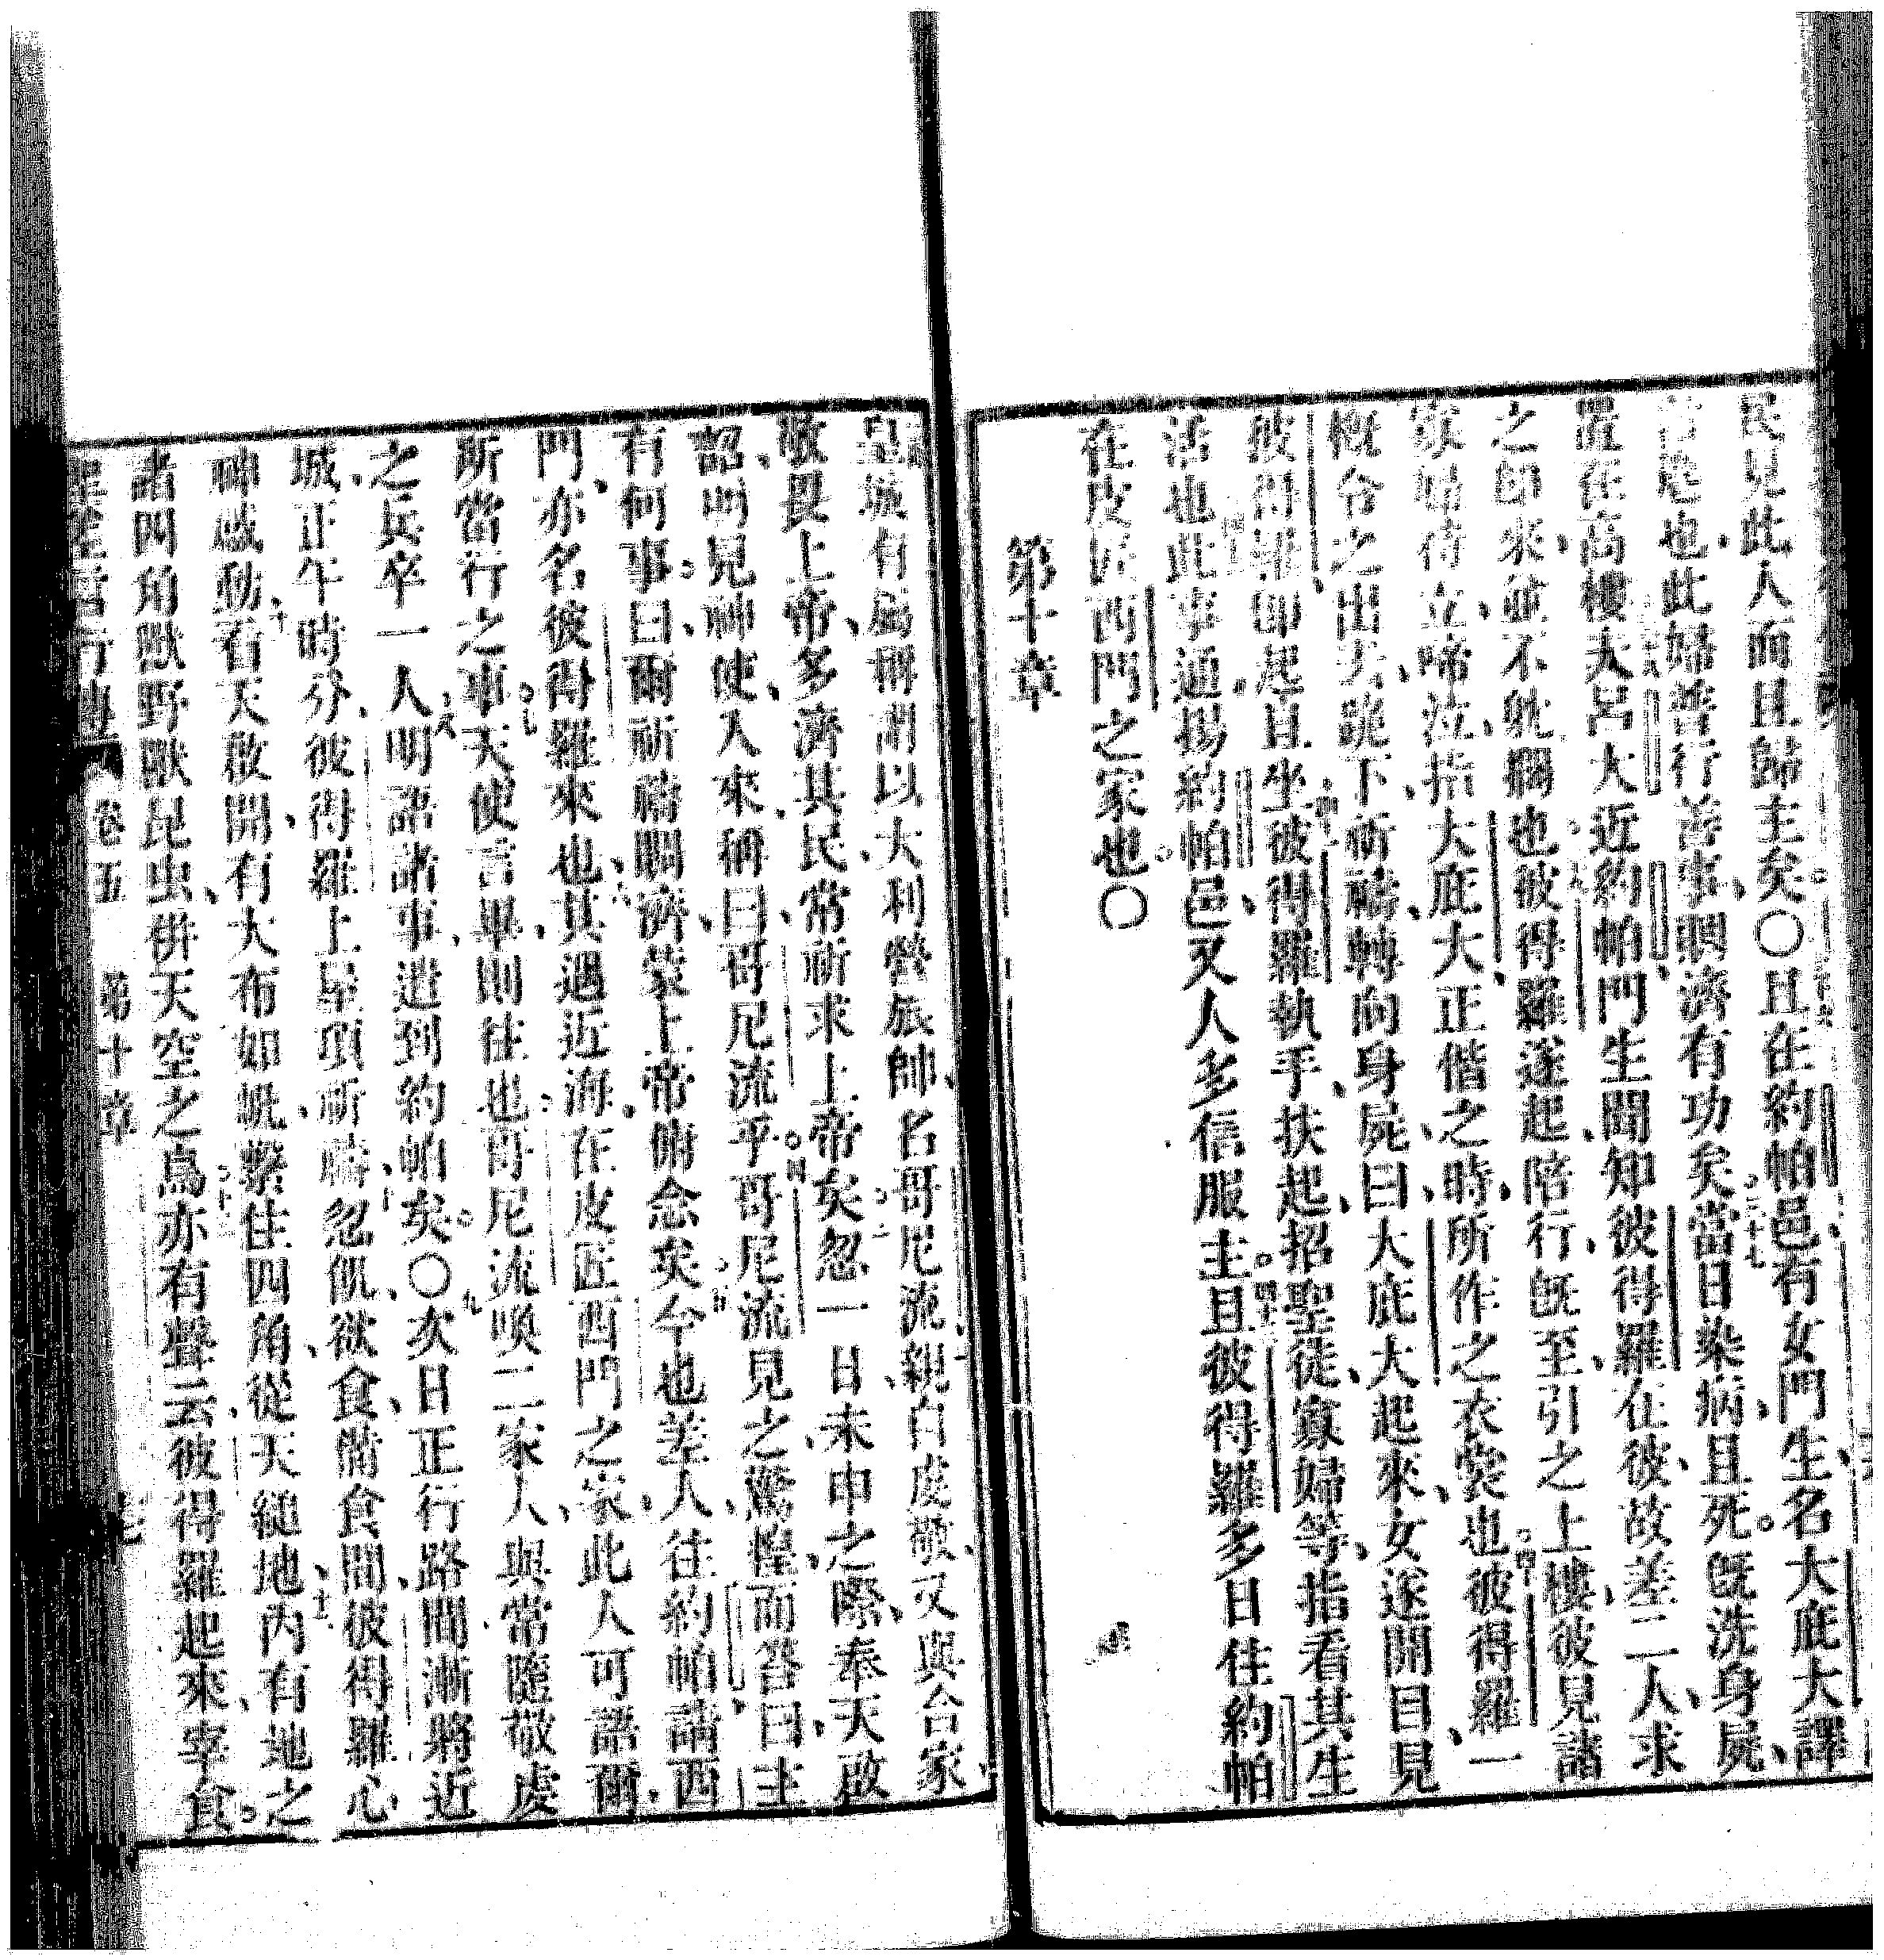 民見此人而且歸主矣〇且在約帕邑有女門生名大庇大譯
也此婦普行善事賙濟有功矣當日染病且死既洗身屍
置在高樓大呂大近約帕門生聞知彼得羅在彼故差二人求
之即來並不躭擱也彼得羅遂起陪行既至引之上樓彼見諸
家婦侍立啼泣指大庇大正偕之時所作之衣裳也彼得羅一
概令之出去跪下祈禱轉向身屍曰大庇大起來女遂開目見
彼得羅即起且坐彼得羅執手扶起招聖徒寡婦等指看其生
活也此事通揚約帕邑又人多信服主且彼得羅多日住約帕
在皮匠西門之家也〇
第十章
皇城有屬稱謂以大利營旅帥名哥尼流親自虔敬又與合家
敬畏上帝多濟其民常祈求上帝矣忽一日未申之際奉天啟
詔明見神使入來稱曰哥尼流乎哥尼流見之驚惶而答曰主
有何事曰爾祈禱賙濟蒙上帝俯念矣今也差人往約帕請西
門亦名彼得羅來也其遇近海在皮匠西門之家此人可語爾
所當行之事天使言畢則往也哥尼流喚二家人與常隨敬虔
之兵卒一人明語諸事遣到約帕矣〇次日正行路間漸將近
城正午時分彼得羅上屋頂祈禱忽飢欲食備食間彼得羅心
神感動看天啟開有大布如幌繫住四角從天縋地內有地之
諸四角獸野獸昆虫併天空之鳥亦有聲云彼得羅起來宰食
聖差言行傳 卷五 第十章